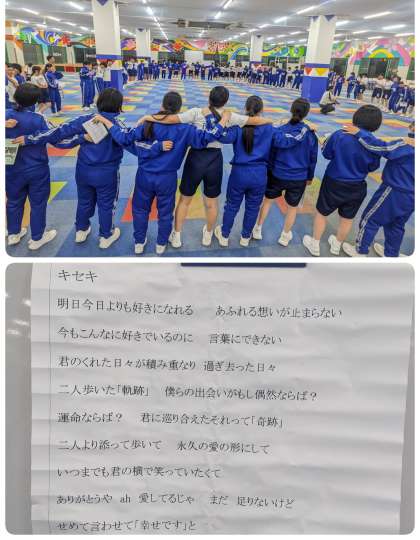 キセキ
明日今日よりも好きになれる　あふれる想いが止まらない
今もこんなに好きでいるのに　言葉にできない
君のくれた日々が積み重なり　過ぎ去った日々
二人歩いた「軌跡」　僕らの出会いがもし偶然ならば？
運命ならば？　君に巡り合えたそれって「奇跡」
二人より添って歩いて　永久の愛の形にして
いつまでも君の横で笑っていたくて
ありがとうや　ah　愛してるじゃ　まだ　足りないけど
せめて言わせて「幸せです」と